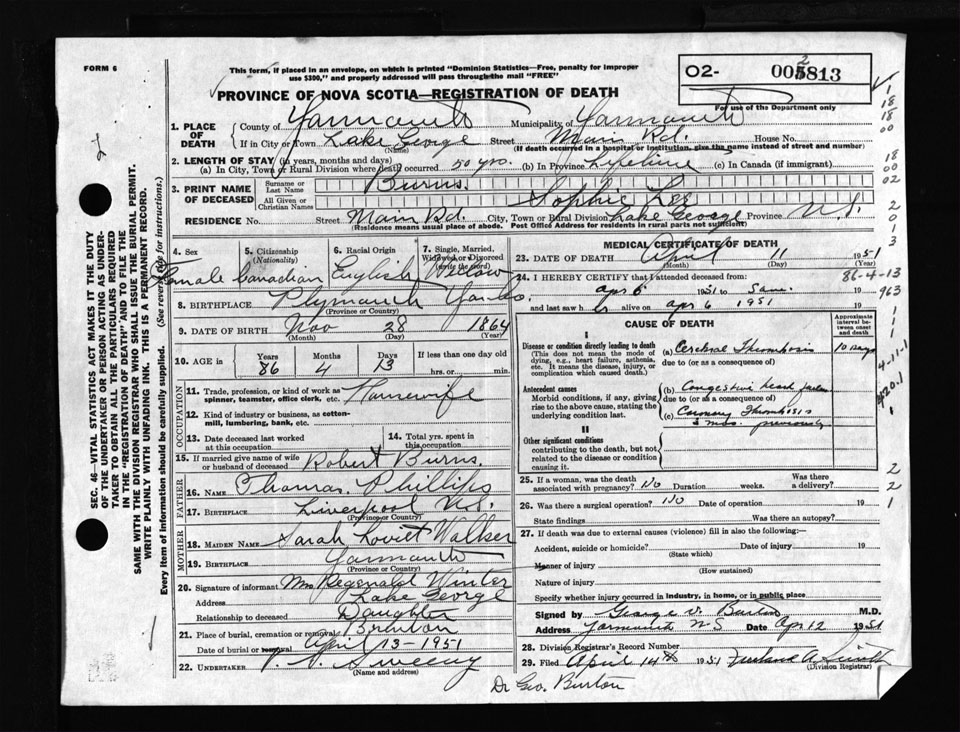 FORM 6
This form, if placed in an envelope, on which is printed "Dominion Statistics—Free, penalty for improper
use $300," and properly addressed will pass through the mail "FREE"
PROVINCE OF NOVA SCOTIA—REGISTRATION OF DEATH
O2- 813
For use of the Department only
1. PLACE OF DEATH County of Yarmouth Municipality of Yarmouth
If in City or Town Lake George Street Main Rd. House No.
(If death occurred in a hospital or institution, give the name instead of street and number)
2. LENGTH OF STAY (in years, months and days)
(a) In City, Town or Rural Division where death occurred 50 yrs. (b) In Province Lifetime (c) In Canada (if immigrant)
3. PRINT NAME OF DECEASED Surname or Last Name Burns
All Given or Christian Names Sophie Lee
RESIDENCE No. Street Main Rd. City, Town or Rural Division Lake George Province N.S.
(Residence means usual place of abode. Post Office Address for residents in rural parts not sufficient)
4. Sex Female
5. Citizenship (Nationality) Canadian
6. Racial Origin English
7. Single, Married, Widowed or Divorced (write the word) Widow
8. BIRTHPLACE Plymouth Yar. Co.
(Province or Country)
9. DATE OF BIRTH Nov 28 1864
(Month) (Day) (Year)
10. AGE in Years 86 Months 4 Days 13 If less than one day old hrs. or min.
OCCUPATION
11. Trade, profession, or kind of work as spinner, teamster, office clerk, etc. Housewife
12. Kind of industry or business, as cotton-mill, lumbering, bank, etc.
13. Date deceased last worked at this occupation
14. Total yrs. spent in this occupation
15. If married give name of wife or husband of deceased Robert Burns.
FATHER
16. NAME Thomas Phillips
17. BIRTHPLACE Liverpool N.S.
(Province or Country)
MOTHER
18. MAIDEN NAME Sarah Lovitt Walker
19. BIRTHPLACE Yarmouth
(Province or Country)
20. Signature of informant Mrs Reginald Winter
Address Lake George
Relationship to deceased Daughter
21. Place of burial, cremation or removal Brenton
Date of burial or removal April 13-1951
22. UNDERTAKER V. S. Sweeny
(Name and address)
MEDICAL CERTIFICATE OF DEATH
23. DATE OF DEATH April 11 1951
(Month) (Day) (Year)
86-4-13
24. I HEREBY CERTIFY that I attended deceased from:
Apr 6 1951 to Same 19
and last saw her alive on Apr 6 1951 19
963
CAUSE OF DEATH
Approximate interval between onset and death
I
Disease or condition directly leading to death
(This does not mean the mode of dying, e.g., heart failure, asthenia, etc. It means the disease, injury, or complication which caused death.)
(a) Cerebral Thrombosis 10 Days
due to (or as a consequence of)
Antecedent causes
Morbid conditions, if any, giving rise to the above cause, stating the underlying condition last.
(b) Congestive heart failure
due to (or as a consequence of)
(c) Coronary Thrombosis
3 mos. previously
4-11-1
420.1
II
Other significant conditions
contributing to the death, but not related to the disease or condition causing it.
25. If a woman, was the death associated with pregnancy? No Duration weeks. Was there a delivery?
26. Was there a surgical operation? No Date of operation 19
State findings Was there an autopsy?
27. If death was due to external causes (violence) fill in also the following:
Accident, suicide or homicide? Date of injury 19
(State which)
Manner of injury
(How sustained)
Nature of injury
Specify whether injury occurred in industry, in home, or in public place
Signed by George V. Burton M.D.
Address Yarmouth N S Date Apr 12 1951
28. Division Registrar's Record Number
29. Filed April 14th 1951
(Division Registrar)
Dr Geo. Burton
SEC. 46—VITAL STATISTICS ACT MAKES IT THE DUTY
OF THE UNDERTAKER OR PERSON ACTING AS UNDER-
TAKER TO OBTAIN ALL THE PARTICULARS REQUIRED
IN THE "REGISTRATION OF DEATH" AND TO FILE THE
SAME WITH THE DIVISION REGISTRAR WHO SHALL ISSUE THE BURIAL PERMIT.
WRITE PLAINLY WITH UNFADING INK. THIS IS A PERMANENT RECORD.
Every item of information should be carefully supplied. (See reverse side for instructions.)